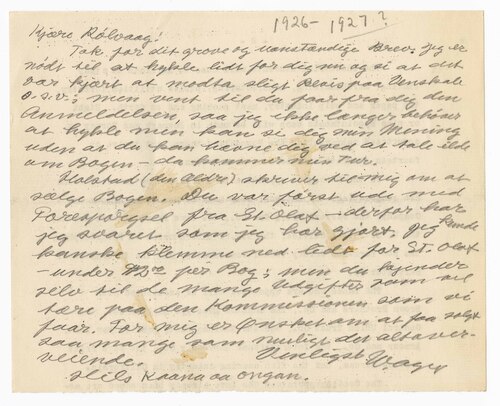 1926-1927?
Kjære Rölvaag!
Tak for dit grove og uanstændige Brev. Jeg er
nödt til at hykle lidt for dig nu og si at det
var kjært at modta sligt Bevis paa Venskab
o.s.v; men vent til du faar fra dig den
Anmeldelsen, saa jeg ikke længer behöver
at hykle men kan si dig min Mening
uden at du kan hævne dig ved at tale ilde
om Bogen - da kommer min Tur.
Holstad (den Ældre) skriver til mig om at
sælge Bogen. Du var först ude med
Forespörgsel fra St. Olaf - derfor har
jeg svaret som jeg har gjort. Jeg kunde
kanske klemme ned lidt for St. Olaf
- under per Bog; men du kjender
selv til de mange Udgifter som vil
tære paa den Kommissionen som vi
faar. For mig er Önsket om at faa solgt
saa mange som muligt det altover-
veiende. Venligst Wager
Hils Kaana aa ongan.